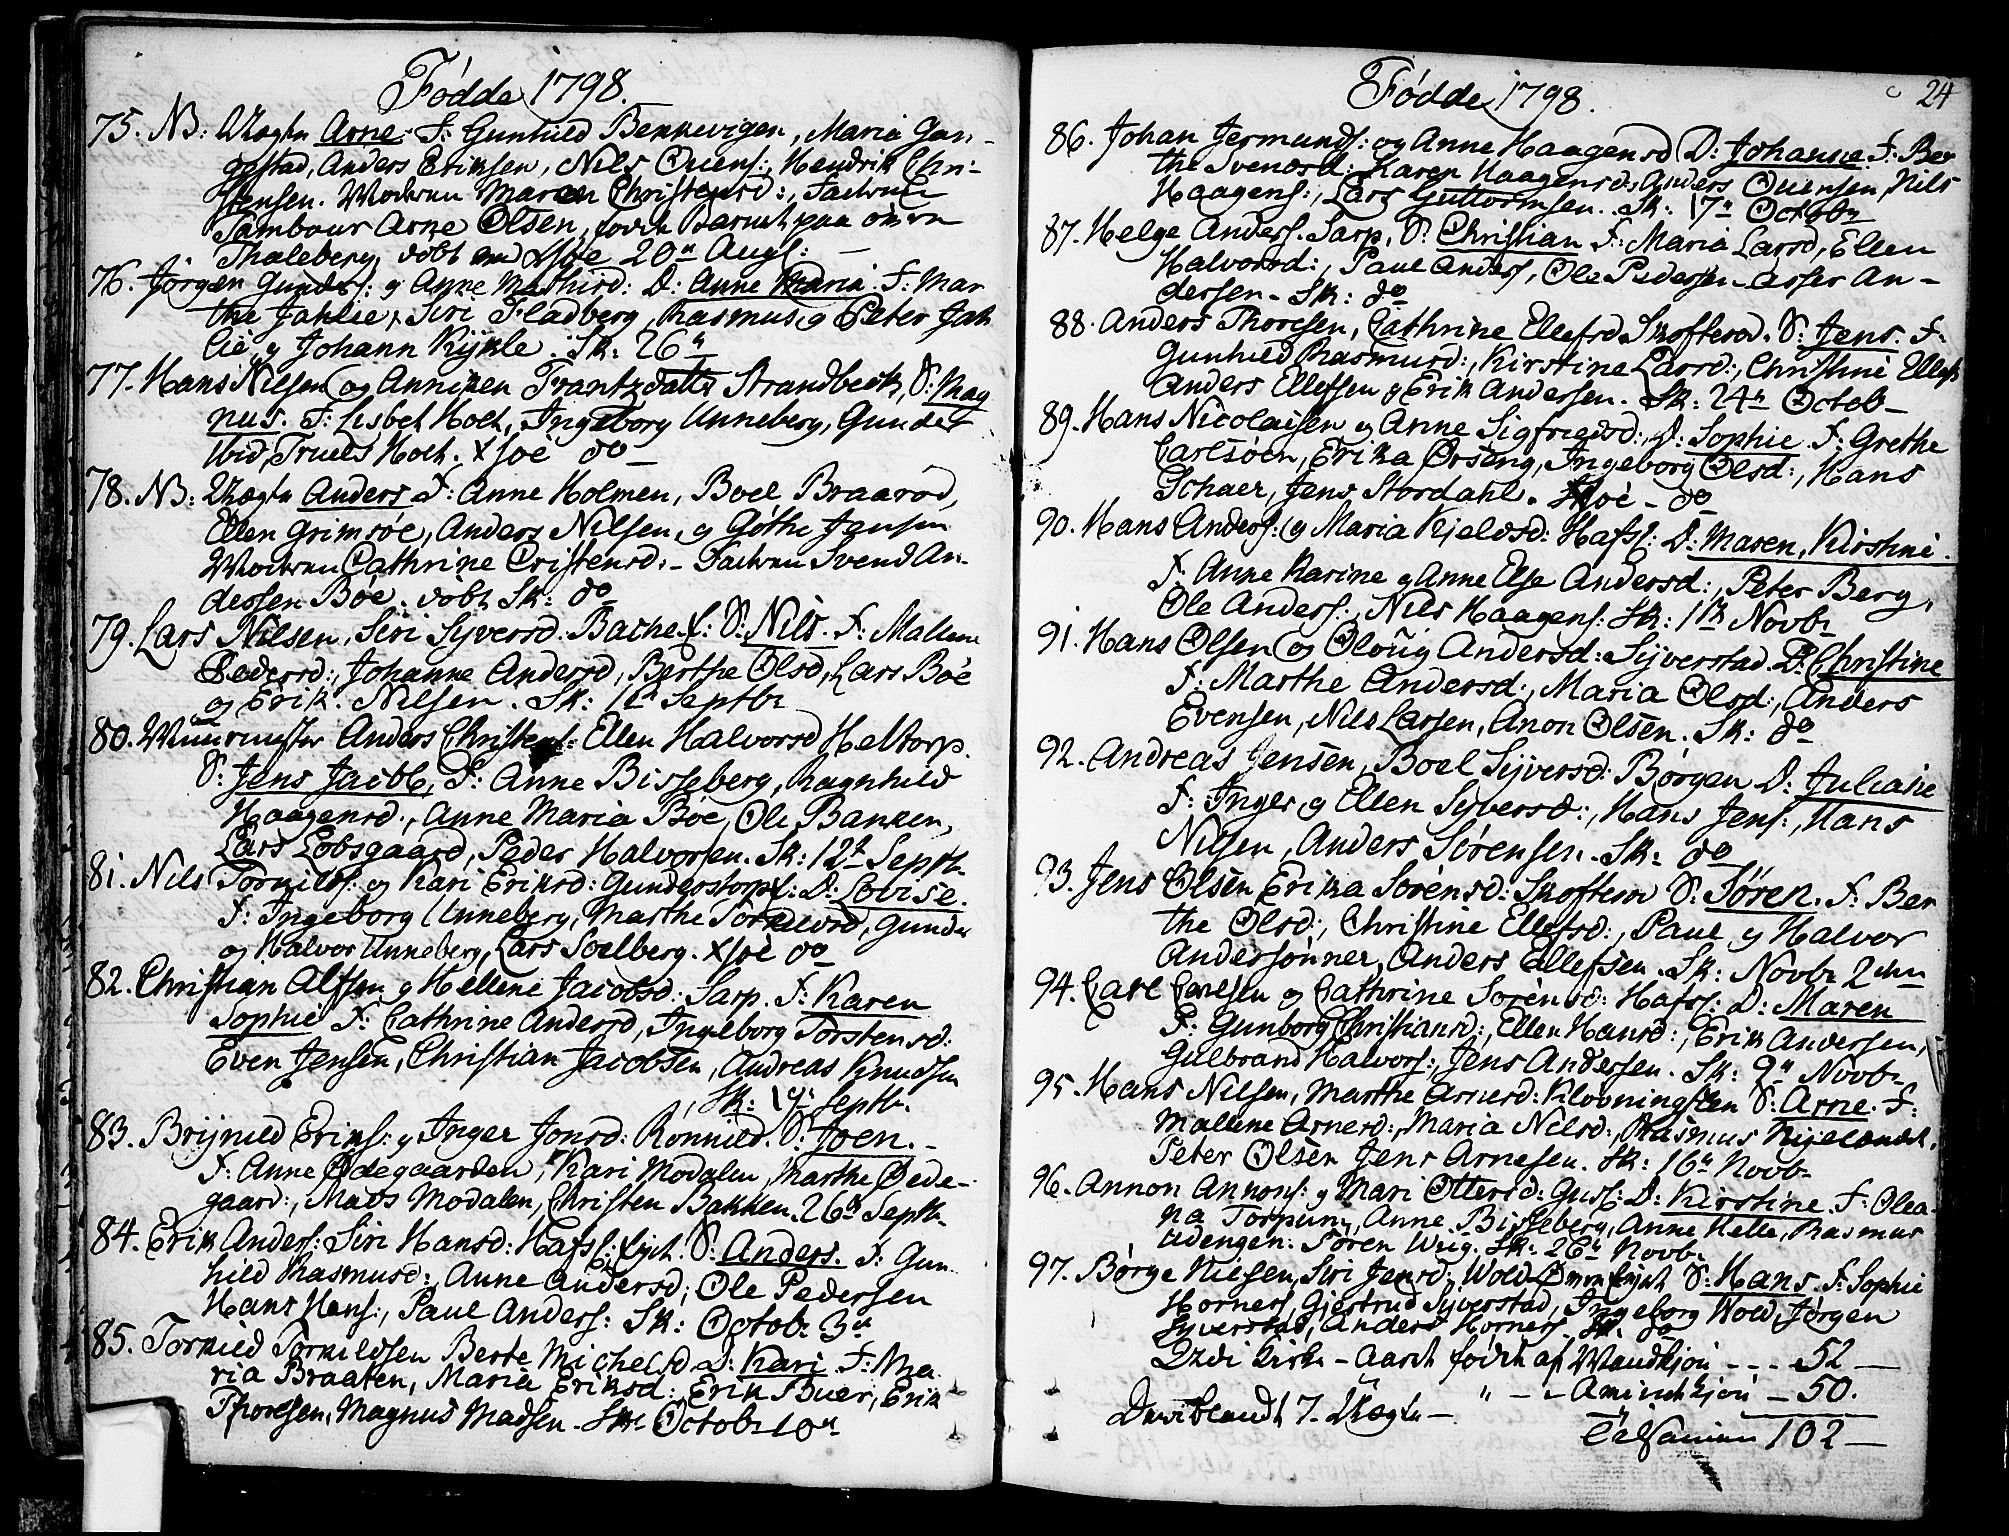 Födde 1798.
75. NB: Uægte Arne. F: Gunhild Bekkevigen, Maria Gan-
gestad, Anders Eriksen, Nils Oluens:, Hendrik Chri-
stensen. Moderen Maren Christensd:, Faderen
Tambour Arne Olsen, födt Barnet paa
Thaleberg, döbt Sxsoe 20de Augs: —
76. Jörgen Gunders: og Anne Mathisd: D: Anne Maria. F: Mar
the Jahlie, Siri Fladberg, Rasmus og Peter Jah
lie, og Johann Kykle. Sk: 26de
77. Hans Nilsen og Anniken Frantzdatter Strandbeck, S: Mag
nus. F: Lisbet Holt, Ingeborg Unneberg, Gunder
ibid, Truels Holt. Xsoè do —
78. NB: Uægte Anders F: Anne Holmen, Boel Braaröd,
Ellen Grimsöe, Anders Nilsen, og Göthe Jensen
Moderen Cathrine Cristensd: - Faderen Svend An-
dersen Böe. döbt Sk: do
79. Lars Nilsen, Siri Syversd. Bache f: S: Nils. F: Mallene
Pedersd:, Johanne Andersd, Berthe Olsd, Lars Böe
og Erik Nilsen. Sk: 1te Septbr
80. Muurmester Anders Christens: Ellen Halvorsd Heltorp.
S: Jens Jacob, F: Anne Bisseberg, Ragnhild
Haagensd:, Anne Maria Böe, Ole Bakken,
Lars Lobsgaard, Peder Halvorsen. Sk: 12te Septb.
81. Nils Torkilds: og Kari Eriksd: Gunderstorpf: D: Lovise.
F: Ingeborg Unneberg, Marthe Torkildsd, Gunder
og Halvor Unneberg, Lars Soelberg. Xsoè do
82. Christian Alfsen og Hellene Jacobsd: Sarp. F: Karen
Sophie F: Cathrine Andersd, Ingeborg Torstensd:
Even Jensen, Christian Jacobsen, Andreas Knudsen
Sk: 19de Septb.
83. Brynild Eriks: og Inger Jonsd: Rönnild. S: Joen. -
F: Anne Ödegaarden, Kari Modalen, Marthe Öede-
gaard:, Mads Modalen, Christen Bakken. 26de Septb.
84. Erik Anders: Siri Hansd: Hafsl: Ejet. S: Anders. F: Gun
hild Rasmusd:, Anne Andersd, Ole Pedersen
Hans Hans:, Paul Anders: Sk: Octob: 3de
85. Torkild Torkildsen Berte Michelsd D: Kari F: Ma
ria Braaten, Maria Eriksd: Erik Buer, Erik
Thoresen, Magnus Madsen. Sk: Octob 10de
Födde 1798. 24
86. Johan Jermunds: og Anne Haagensd D: Johanne. F: Ber
the Svendsd: Karen Haagensd:, Anders Oluensen, Nils
Haagens:, Lars Guttormsen. Sk: 17de Octobr
87. Helge Anders. Sarp. S: Christian F: Maria Larsd, Ellen
Halvorsd:, Paul Anders, Ole Pedersen - Asser An-
dersen - Sk: do
88. Anders Thoresen, Cathrine Ellefsd Skofteröd. S: Jens. F:
Gunhild Rasmusd:, Kirstine Larsd:, Christine Ellefs
Anders Ellefsen og Erik Andersen. Sk: 24de Octob —
89. Hans Nicolaisen og Anne Sigfriedsd:, D: Sophie F: Grethe
Carlsöen, Erika Örseng, Ingeborg Olsd:, Hans
Schaer, Jens Stordahl. Xsoè - do
90. Hans Anders: og Maria Kieldsd: Hafsl: D: Maren, Kirstine.
F. Anne Karine og Anne Else Andersd:, Peter Berg,
Ole Anders:, Nils Haagens: Sk: 1te Novbr
91. Hans Olsen og Oloug Andersd: Syverstad. D: Christine
F: Marthe Andersd:, Maria Olsd:, Anders
Evensen, Nils Larsen, Anon Olsen. Sk: do
92. Andreas Jensen, Boel Syversd: Börgen D: Juliane
F: Inger og Ellen Syversd:, Hans Jens:, Hans
Nilsen, Anders Sörensen. Sk: do
93. Jens Olsen Erika Sörensd: Skofteröd S: Sören. F: Ber
the Olsd:, Christine Ellefsd:, Paul og Halvor
Andersönner, Anders Ellefsen. Sk: Novbr 2den
94. Carl Carlsen og Cathrine Sörensd: Hafsl: D: Maren
F: Gunborg Christiansd:, Ellen Hansd:, Erik Andersen,
Gulbrand Halvors:, Jens Andersen. Sk: 9de Novbr
95. Hans Nilsen, Marthe Arnesd: Klovningsten S: Arne. F:
Mallene Arnesd:, Maria Nilsd:, Rasmus
Peter Olsen Jens Arnesen. Sk: 16de Novb-
96. Annon Annons: og Mari Ottersd: Gusl: D: Kirstine. F: Olea-
na Torpum, Anne Bisseberg, Anne Helle, Rasmus
Udengen: Sören Wiig. Sk: 26de Novb-
97. Börge Nielsen, Siri Jensd, Wold Ejet S: Hans. F: Sophie
Horness, Giertrud Syverstad, Ingeborg Wold, Jörgen
Syverstad, Anders Horness. Sk: do
I Kirke - Aaret födt af Mandkjön - - - 52 —
" - - Qvindekjön — 50.
Deriblandt 7. Uægte —
Tilsammen 102 —